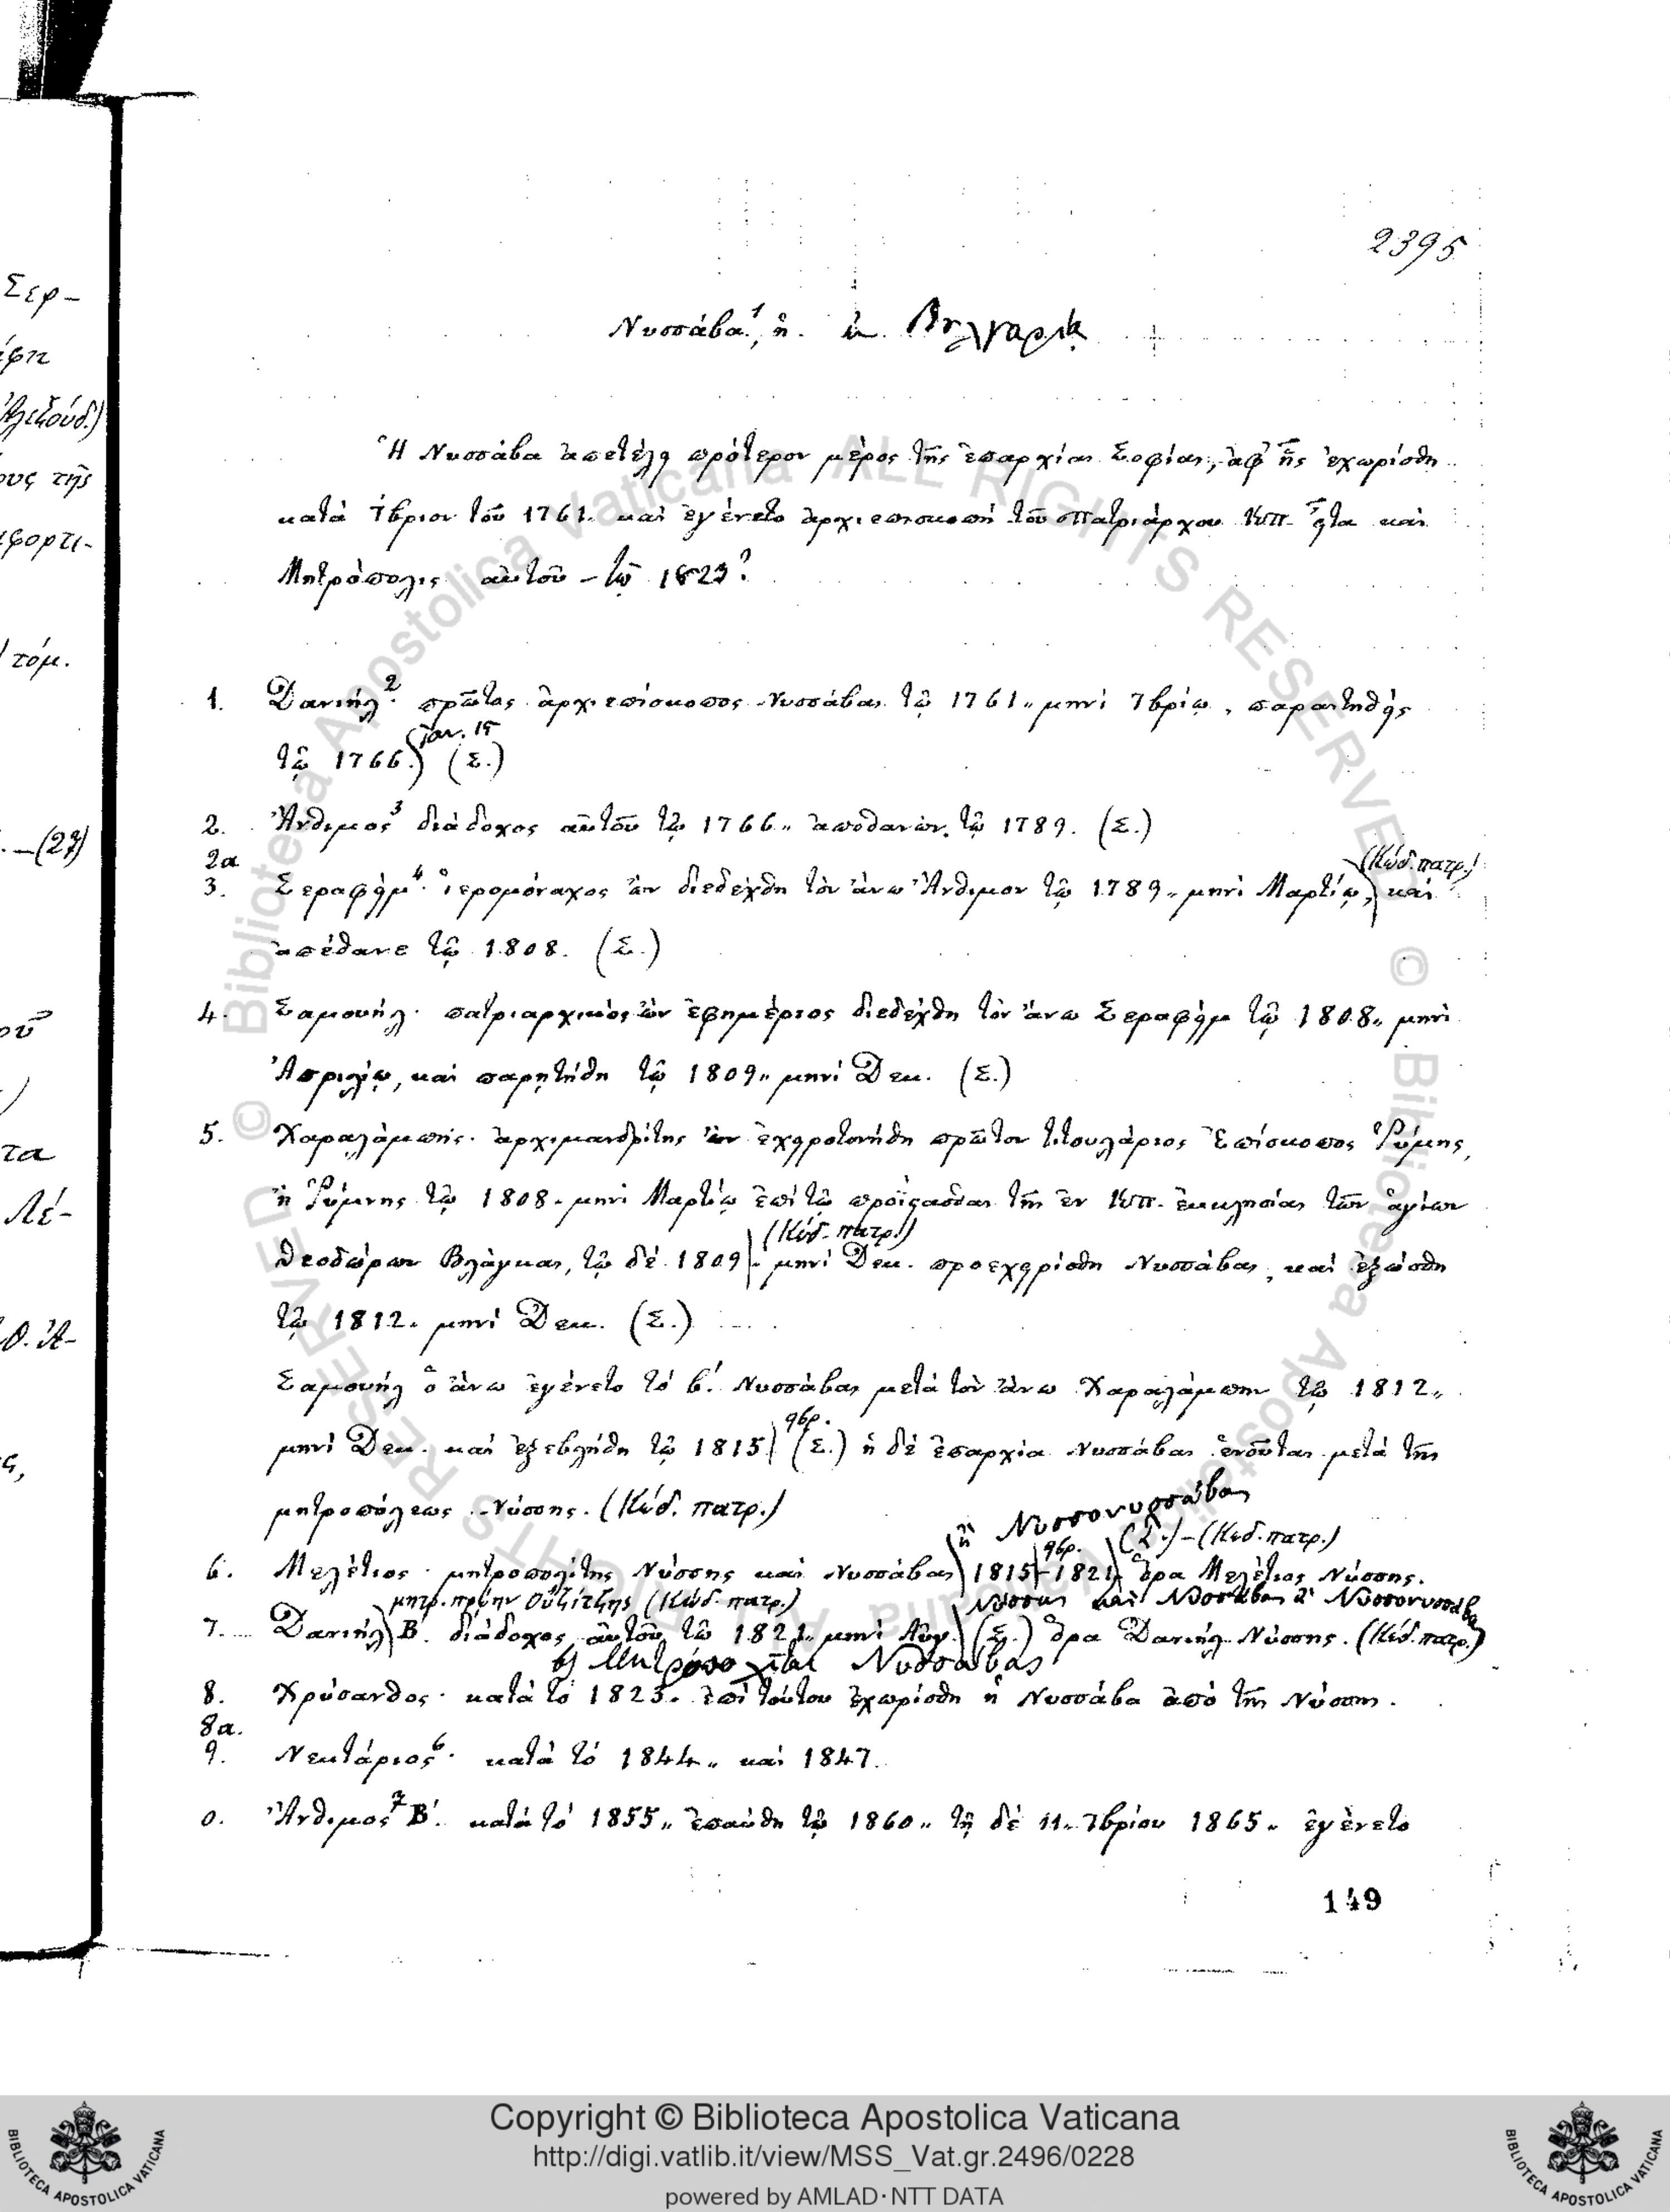 2395
Νυσσάβα,¹ ἡ. ἐν Βουλγαρίᾳ
Ἡ Νυσσάβα ἀπετέλει πρότερον μέρος τῆς ἐπαρχίας Σοφίας, ἀφ' ἧς ἐχωρίσθη
κατὰ 7βριον τοῦ 1761. καὶ ἐγένετο ἀρχιεπισκοπὴ τοῦ Πατριάρχου Κπ. εἶτα καὶ
Μητρόπολις αὐτοῦ – τῷ 1823?
1. Δανιήλ². πρῶτος ἀρχιεπίσκοπος Νυσσάβας τῷ 1761,, μηνὶ 7βρίῳ, παραιτηθεὶς
Ἰαν. 15
τῷ 1766.) (Σ.)
2. Ἄνθιμος³ διάδοχος αὐτοῦ τῷ 1766,, ἀποθανὼν τῷ 1789. (Σ.)
2α (Κώδ. πατρ.)
3. Σεραφείμ⁴. ἱερομόναχος ὢν διεδέχθη τὸν ἄνω Ἄνθιμον τῷ 1789,, μηνὶ Μαρτίῳ, καὶ
ἀπέθανε τῷ 1808. (Σ.)
4. Σαμουήλ. πατριαρχικὸς ὢν ἐφημέριος διεδέχθη τὸν ἄνω Σεραφεὶμ τῷ 1808,, μηνὶ
Ἀπριλίῳ, καὶ παρῃτήθη τῷ 1809,, μηνὶ Δεκ. (Σ.)
5. Χαραλάμπης. ἀρχιμανδρίτης ὢν ἐχειροτονήθη πρῶτον τιτουλάριος Ἐπίσκοπος Ῥύμης,
ἢ Ῥύμνης τῷ 1808,, μηνὶ Μαρτίῳ ἐπὶ τῷ προΐστασθαι τῆς ἐν Κπ. ἐκκλησίας τῶν ἁγίων
(Κώδ. πατρ.)
Θεοδώρων Βλάγκας, τῷ δὲ 1809,, μηνὶ Δεκ. προεχειρίσθη Νυσσάβας, καὶ ἐξώσθη
τῷ 1812,, μηνὶ Δεκ. (Σ.)
Σαμουὴλ ὁ ἄνω ἐγένετο τὸ β΄. Νυσσάβας μετὰ τὸν ἄνω Χαραλάμπην τῷ 1812,,
9βρ.
μηνὶ Δεκ. καὶ ἐξεβλήθη τῷ 1815 (Σ.) ἡ δὲ ἐπαρχία Νυσσάβας ἑνοῦται μετὰ τῆς
μητροπόλεως Νύσσης. (Κώδ. πατρ.)
ἢ Νυσσονυσσάβας
9βρ. (Σ.) – (Κώδ. πατρ.)
6. Μελέτιος. μητροπολίτης Νύσσης καὶ Νυσσάβας 1815 – 1821 ὅρα Μελέτιος Νύσσης.
μητρ. πρώην Οὐζίτζης (Κώδ. πατρ.) Νύσσης καὶ Νυσσάβας ἢ Νυσσονυσσάβας
7. Δανιήλ Β. διάδοχος αὐτοῦ τῷ 1821,, μηνὶ Αὐγ. (Σ.) ὅρα Δανιὴλ Νύσσης. (Κώδ. πατρ.)
Μητροπολῖται Νυσσάβας
8. Χρύσανθος. κατὰ τὸ 1823. ἐπὶ τούτου ἐχωρίσθη ἡ Νυσσάβα ἀπὸ τῆς Νύσσης.
8α.
9. Νεκτάριος⁶. κατὰ τὸ 1844,, καὶ 1847.
0. Ἄνθιμος⁷ Β΄. κατὰ τὸ 1855,, ἐπαύθη τῷ 1860,, τῇ δὲ 11,, 7βρίου 1865,, ἐγένετο
149
Σερ-
τόμ.
. –(27)
τα
Λέ-
Copyright © Biblioteca Apostolica Vaticana
http://digi.vatlib.it/view/MSS_Vat.gr.2496/0228
powered by AMLAD·NTT DATA
BIBLIOTECA APOSTOLICA VATICANA
BIBLIOTECA APOSTOLICA VATICANA
© Biblioteca Apostolica Vaticana ALL RIGHTS RESERVED
© Biblioteca Apostolica Vaticana ALL RIGHTS RESERVED